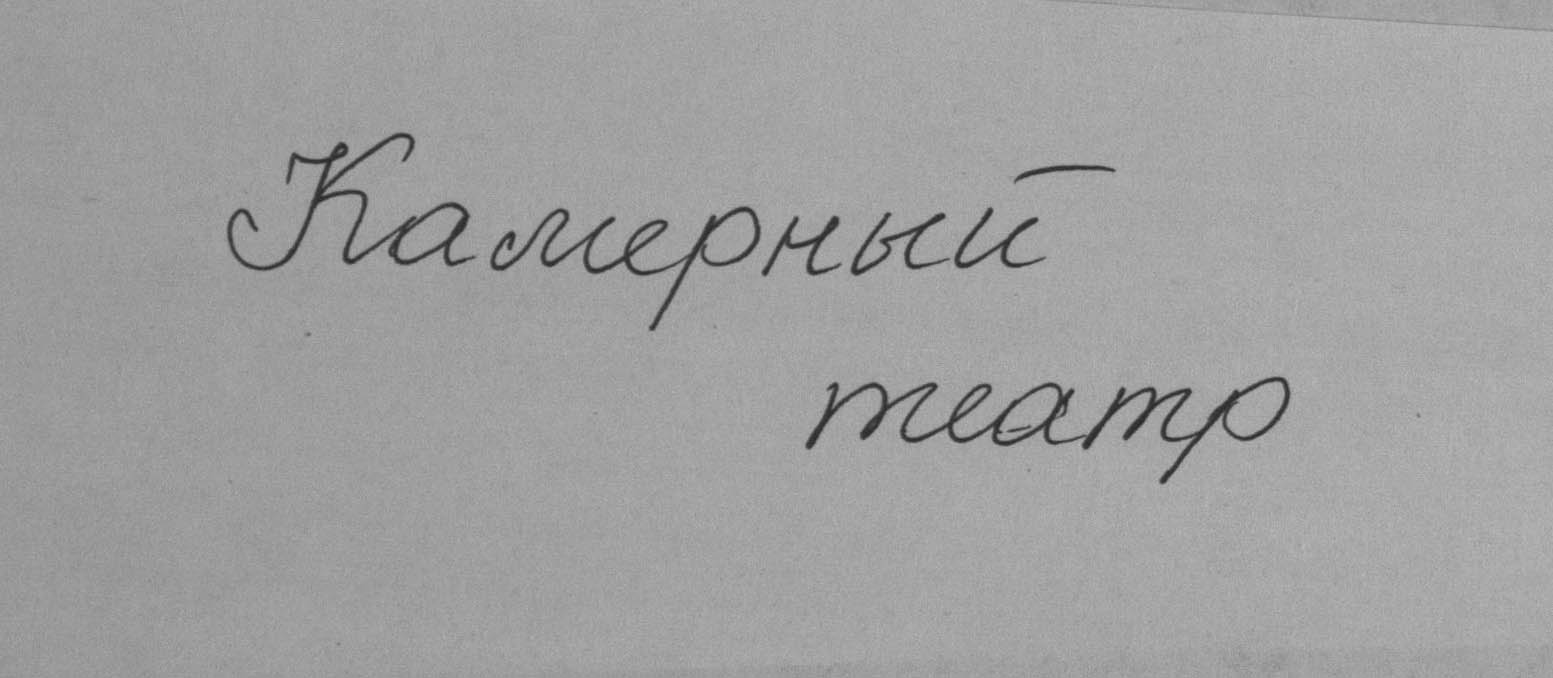 Камерный
театр